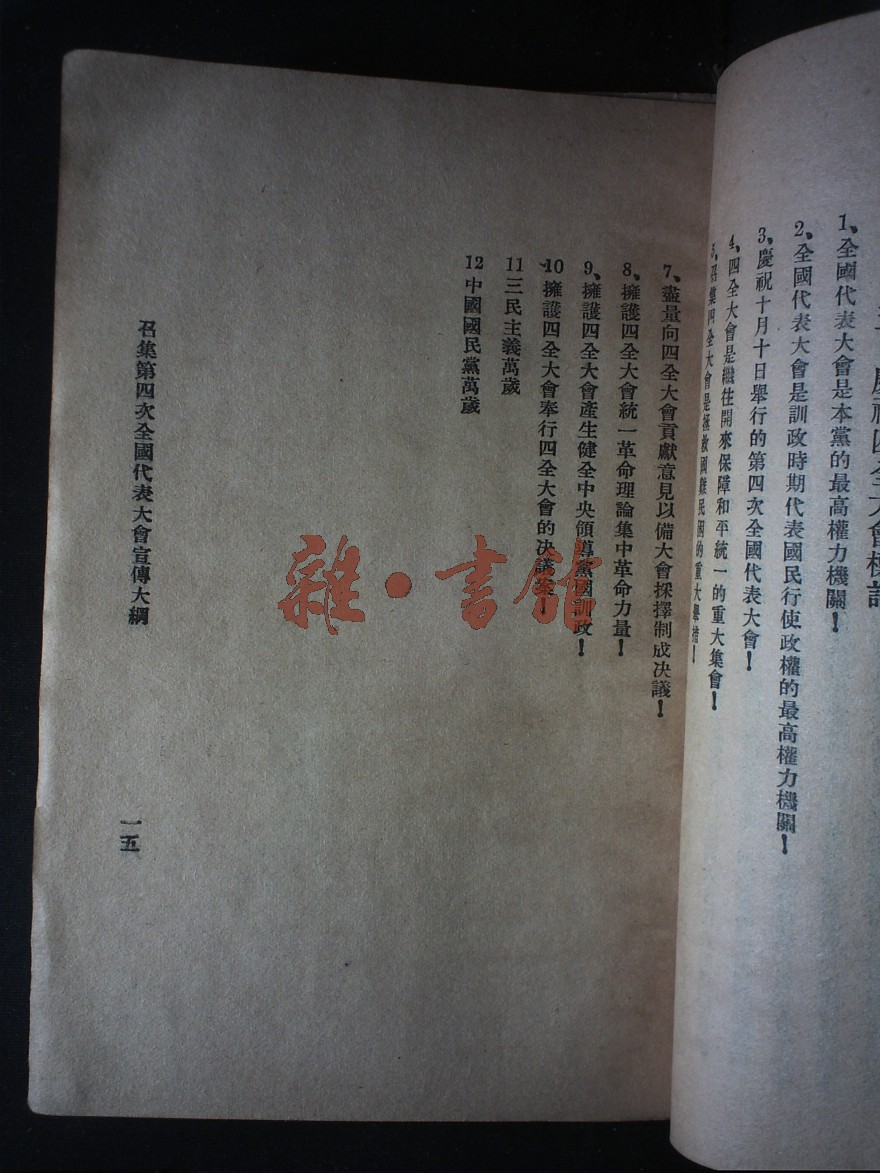 慶祝四全大會標語
1、全國代表大會是本黨的最高權力機關！
2、全國代表大會是訓政時期代表國民行使政權的最高權力機關！
3、慶祝十月十日舉行的第四次全國代表大會！
4、四全大會是繼往開來保障和平統一的重大集會！
5、召集四全大會是拯救國難民困的重大舉措！
7、盡量向四全大會貢獻意見以備大會採擇制成決議！
8、擁護四全大會統一革命理論集中革命力量！
9、擁護四全大會產生健全中央領導黨國訓政！
10擁護四全大會奉行四全大會的決議案！
11三民主義萬歲
12中國國民黨萬歲
召集第四次全國代表大會宣傳大綱
一五
雜·書館